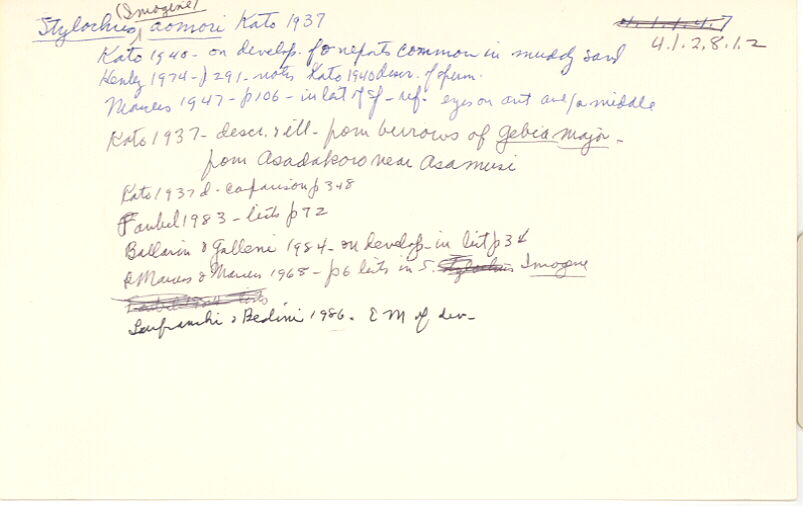 (Imogene)
Stylochus aomori Kato 1937
4.1.2.8.1.2
Kato 1940 - on develop. reports common in muddy sand
Henley 1974 - p 291 - notes Kato 1940 descr. of sperm.
Marcus 1947 - p106 - in list of sf - ref. eyes on ant
Kato 1937 - descr. & ill - from burrows of Gebia major -
from Asadokoro near Asamusi
Kato 1937d - comparison p 348
Faubel 1983 - lists p 72
Ballarin & Galleni 1984 - on develop - in list p 34
Marcus & Marcus 1968 - p6 lists in S. Stylochus Imogene
Faubel 1984 lists
Lanfranchi & Bedini 1986 - E M of dev -